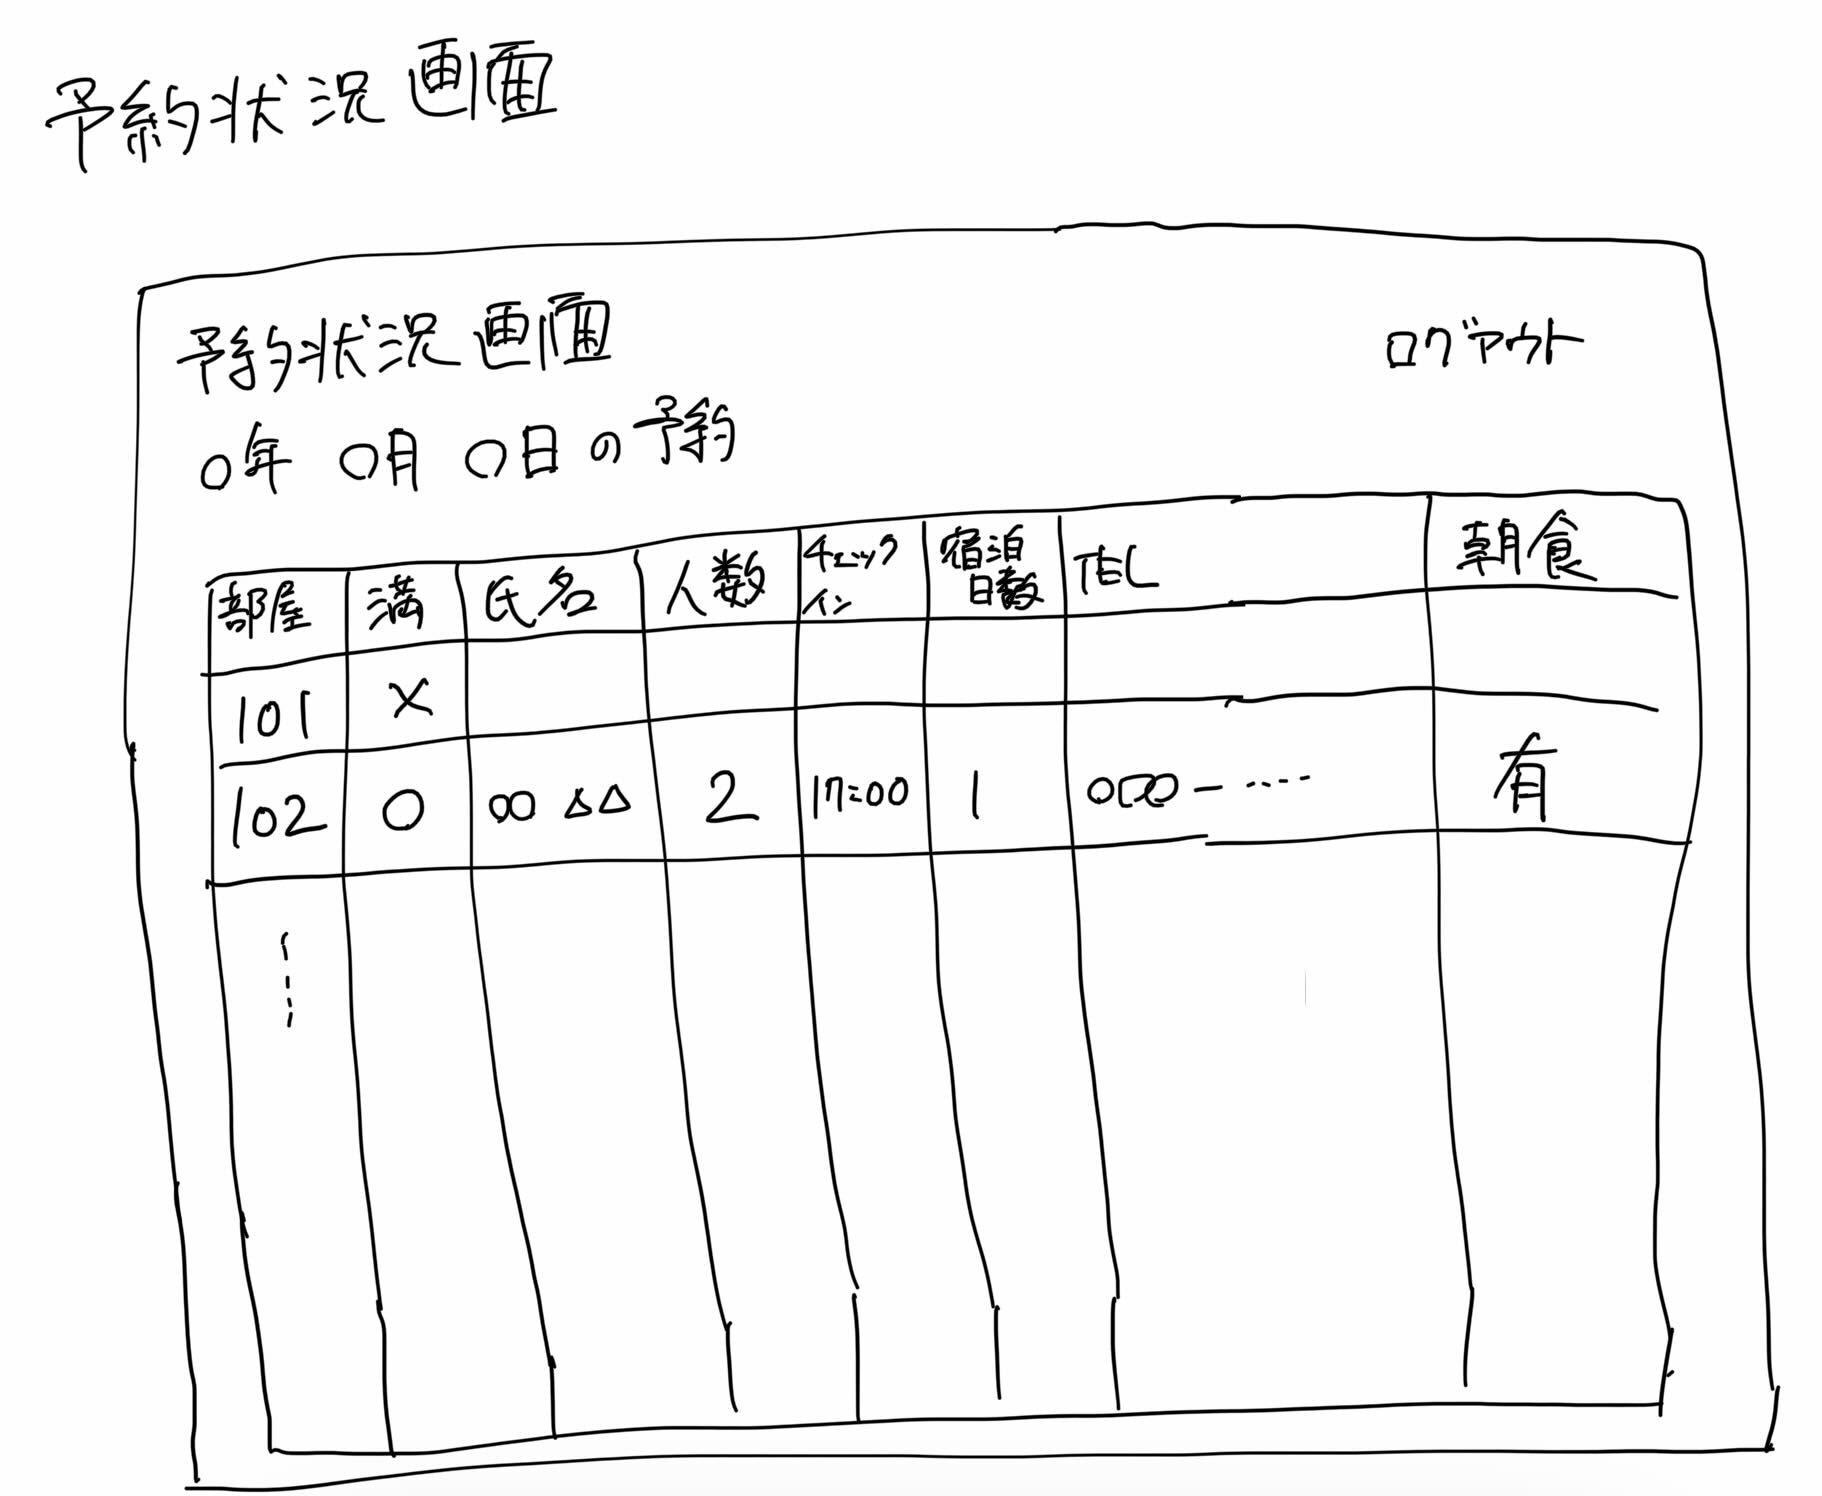 予約状況画面
予約状況画面 ログアウト
〇年 〇月 〇日の予約
部屋 満 氏名 人数 チェックイン 宿泊日数 TEL 朝食
101 ×
102 〇 〇〇 △△ 2 17:00 1 〇〇〇-‥‥ 有